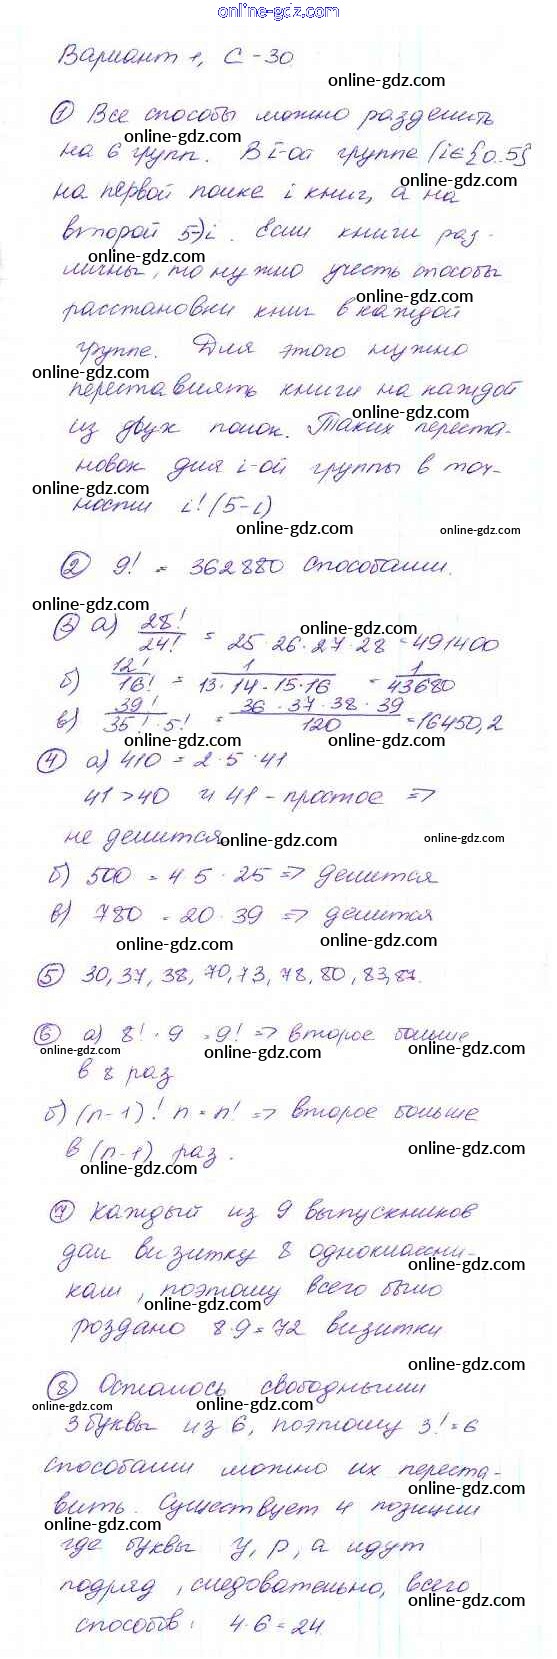 online-gdz.com
Вариант 1, С-30
online-gdz.com
① Все способы можно разделить
online-gdz.com
на 6 групп. В i-ой группе (i∈{0.5}
online-gdz.com
на первой полке i книг, а на
второй 5-)i. Если книги раз-
online-gdz.com
личны, то нужно учесть способы
online-gdz.com
расстановки книг в каждой
группе. Для этого нужно
online-gdz.com
переставлять книги на каждой
online-gdz.com
из двух полок. Таких переста-
новок для i-ой группы в точ-
online-gdz.com
ности i! (5-i)
online-gdz.com online-gdz.com
② 9! = 362880 способами.
online-gdz.com
③ а) 28!/24! = 25·26·27·28 = 491400
online-gdz.com
б) 12!/16! = 1/13·14·15·16 = 1/43680
в) 39!/35!·5! = 36·37·38·39/120 = 16450,2
online-gdz.com
④ а) 410 = 2·5·41
online-gdz.com
41>40 и 41 - простое =>
не делится
online-gdz.com online-gdz.com
б) 500 = 4·5·25 => делится
в) 780 = 20·39 => делится
online-gdz.com online-gdz.com
⑤ 30, 37, 38, 70, 73, 78, 80, 83, 87.
⑥ а) 8!·9 = 9! => второе больше
online-gdz.com online-gdz.com online-gdz.com
в 8 раз
б) (n-1)! n = n! => второе больше
online-gdz.com
в (n-1) раз.
online-gdz.com
⑦ Каждый из 9 выпускников
дал визитку 8 однокласcни-
online-gdz.com
кам, поэтому всего было
online-gdz.com
роздано 8·9=72 визитки
online-gdz.com
⑧ Осталось свободными
online-gdz.com online-gdz.com
3 буквы из 6, поэтому 3!=6
способами можно их переста-
online-gdz.com
вить. Существует 4 позиции
online-gdz.com
где буквы у, р, а идут
online-gdz.com
подряд, следовательно, всего
online-gdz.com
способов: 4·6=24.
online-gdz.com